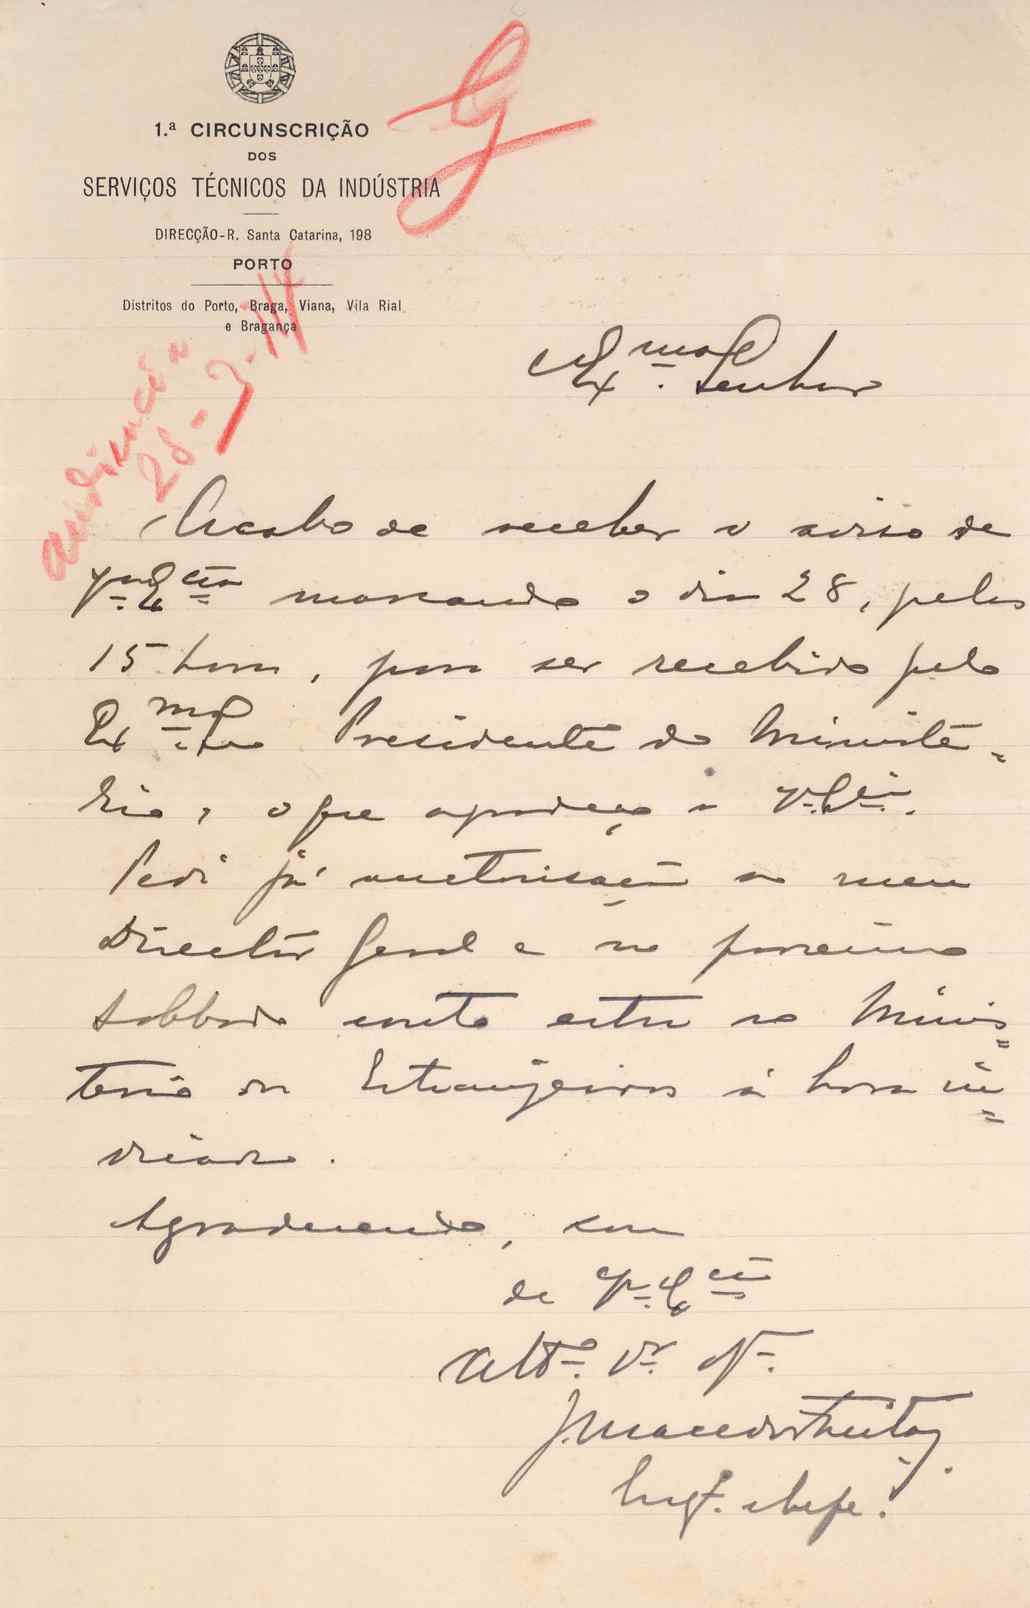 1.ª CIRCUNSCRIÇÃO
DOS
SERVIÇOS TÉCNICOS DA INDÚSTRIA
DIRECÇÃO-R. Santa Catarina, 198
PORTO
Distritos do Porto, Braga, Viana, Vila Rial
e Bragança
audiencia
28-3-
Exmo Senhor
Acabo de receber o aviso de
V. Ex.cia marcando o dia 28, pelas
15 horas, para ser recebido pelo
Ex.mo Snr Presidente do Ministé-
rio, o que agradeço a V. Ex.cia.
Pedi já auctorisação ao meu
Director Geral e no proximo
sabbado conto estar no Minis-
terio dos Estrangeiros á hora in-
dicada.
Agradecendo, sou
de V. Ex.cia
Att.º V.or
J. Macedo Freitas.
Eng.º chefe.